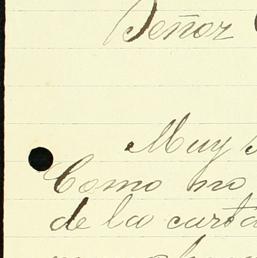 Señor
Muy
Como no
de la carta